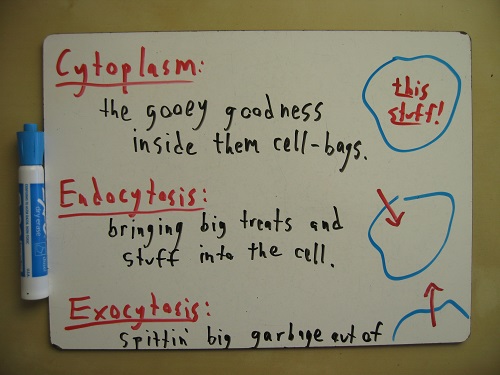 Cytoplasm:
the gooey goodness
inside them cell-bags.
this
stuff!
Endocytosis:
bringing big treats and
stuff into the cell.
Exocytosis:
spittin' big garbage out of